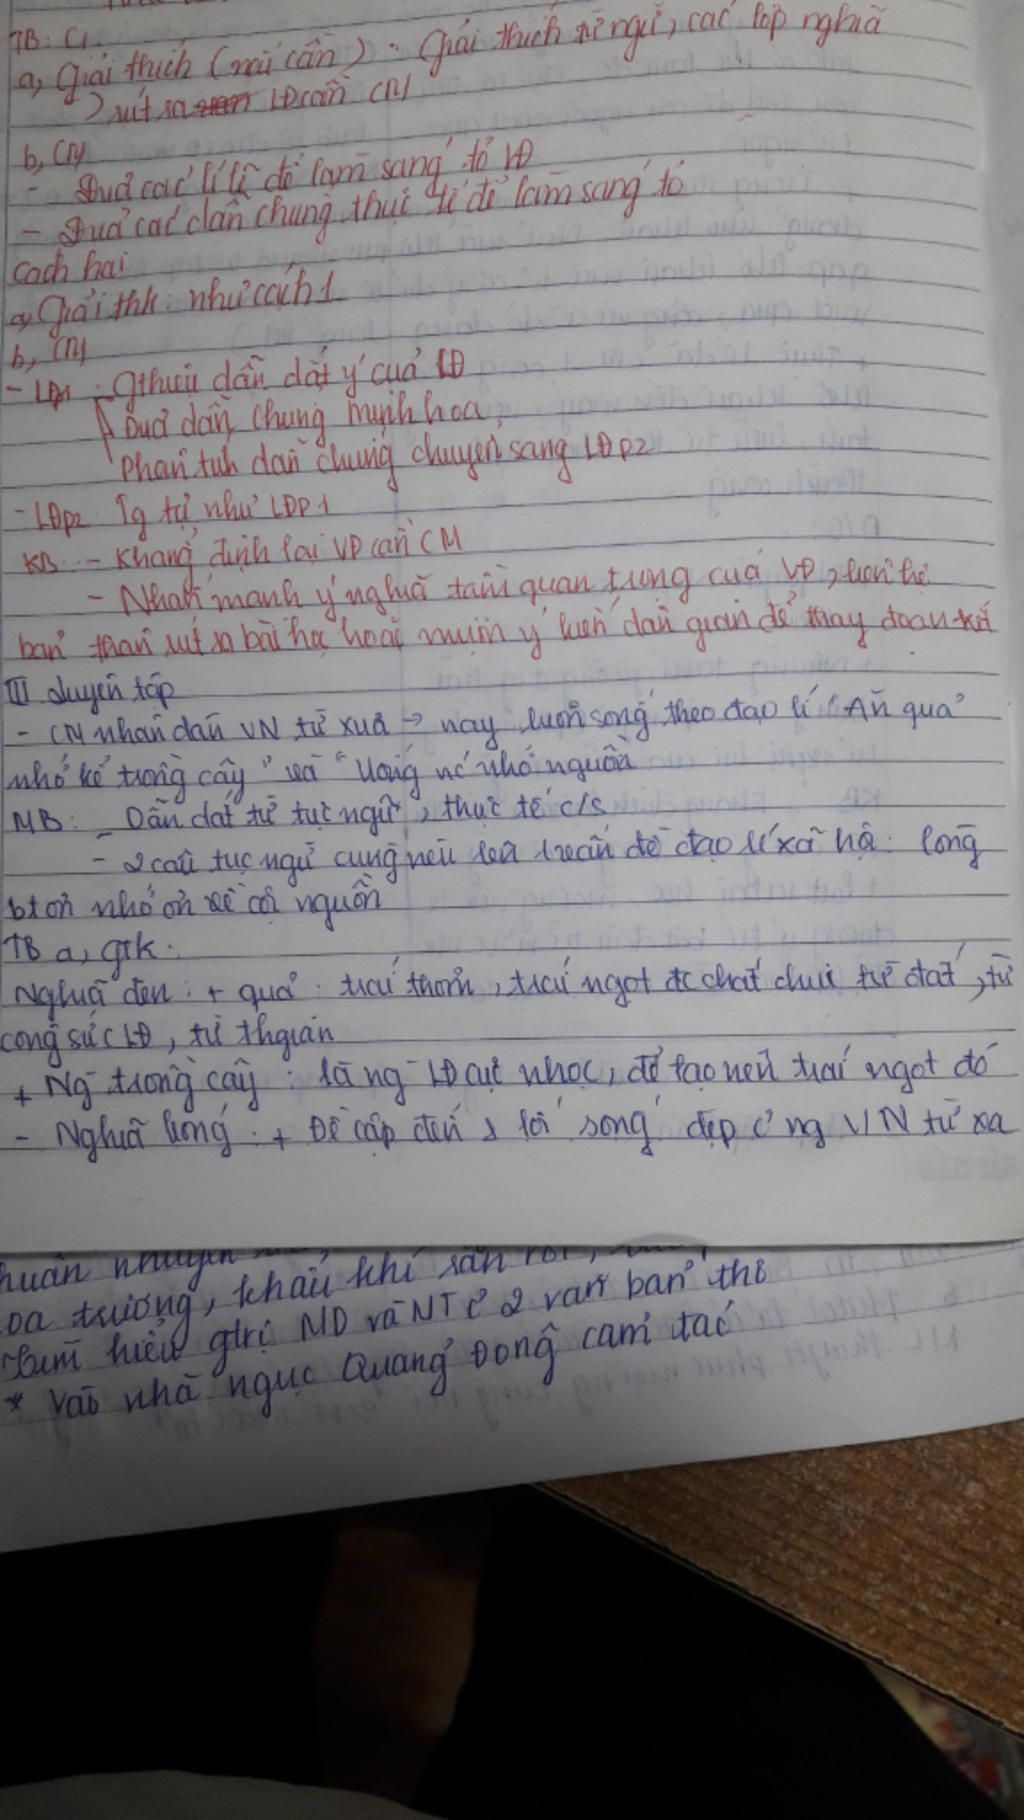 TB: C1
a, Giải thích (nếu cần): Giải thích từ ngữ, các lớp nghĩa
rút ra LĐ cần CM
b, CM
- Đưa các lí lẽ để làm sáng tỏ LĐ
- Đưa các dẫn chứng thực tế để làm sáng tỏ
Cách hai
a, Giải thk: như cách 1
b, CM
- LĐp1: Gthiệu dẫn dắt ý của LĐ
Đưa dẫn chứng minh hoạ,
Phân tích dẫn chứng chuyển sang LĐp2
- LĐp2: Tg tự như LĐp1
KB: - Khẳng định lại VĐ cần CM
- Nhấn mạnh ý nghĩa tầm quan trọng của VĐ, liên hệ
bản thân rút ra bài học hoặc mượn ý kiến dân gian để thay đoạn kết
III Luyện tập
- CM nhân dân VN từ xưa → nay luôn sống theo đạo lí "Ăn quả
nhớ kẻ trồng cây" và "Uống nc nhớ nguồn
MB: - Dẫn dắt từ tục ngữ, thực tế c/s
- 2 câu tục ngữ cùng nêu lên vấn đề đạo lí xã hội: lòng
btơn nhớ ơn về cội nguồn
TB a, gtk:
Nghĩa đen: + quả: trái thơm, trái ngọt đc chắt chiu từ đất, từ
công sức LĐ, từ thgian
+ Ng trồng cây: là ng LĐ cực nhọc, để tạo nên trái ngọt đó
- Nghĩa bóng: + Đề cập đến 1 lối sống đẹp c ng VN từ xa
huần nhuyễn
oa trương, khẩu khí
Tìm hiểu gtrị ND và NT c 2 văn bản thơ
* Vào nhà ngục Quảng Đông cảm tác